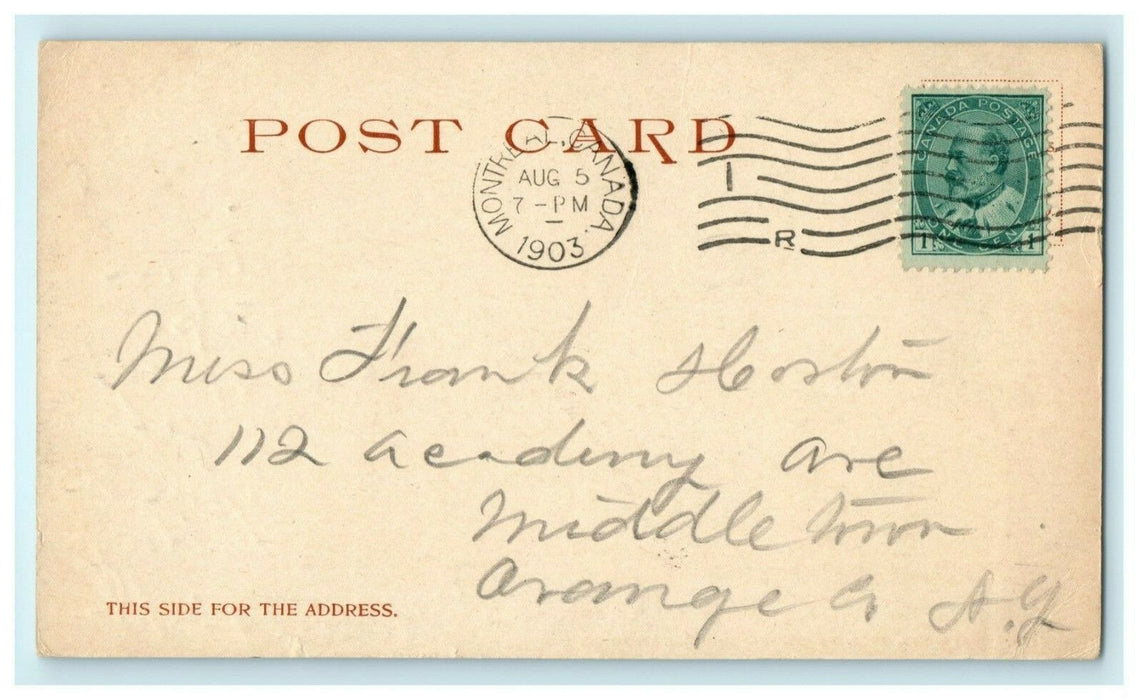 POST CARD
MONTREAL, CANADA.
AUG 5
7-PM
1903
I
R
CANADA POSTAGE
1 ONE CENT 1
Miss Frank Horton
112 academy ave
Middletown
Orange Co N.Y
THIS SIDE FOR THE ADDRESS.